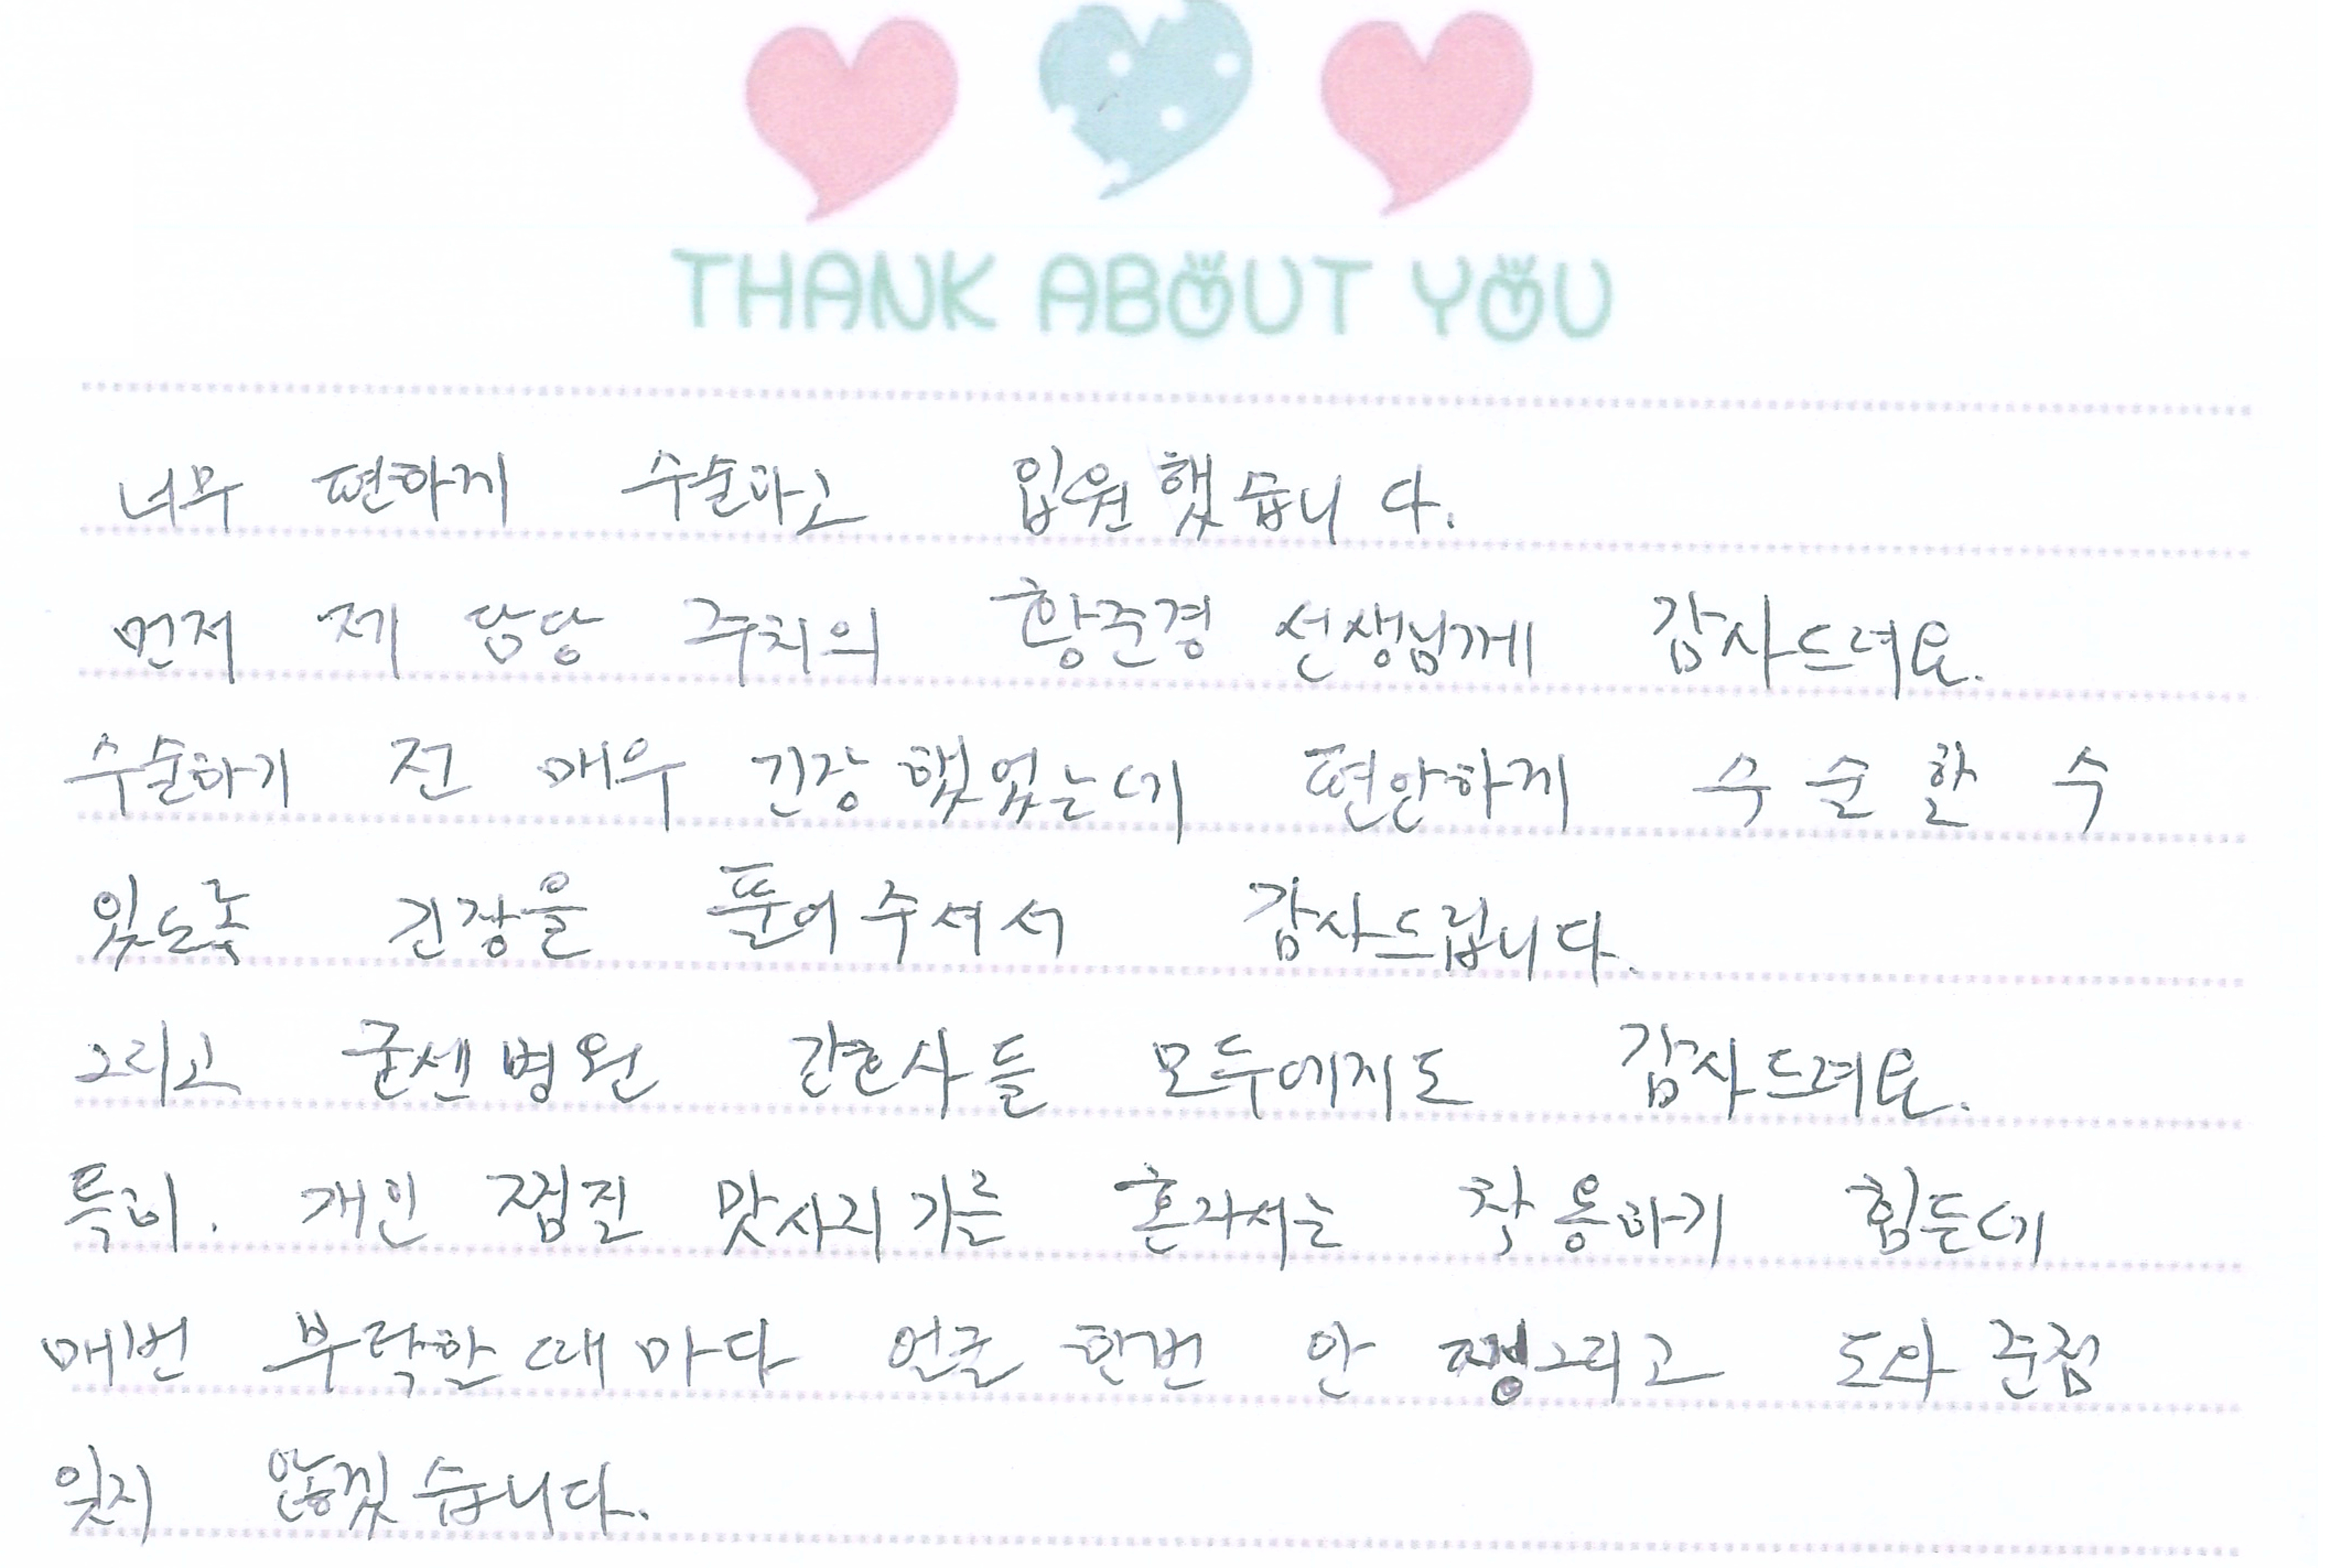 THANK ABOUT YOU
너무 편하게 수술하고 입원했습니다.
먼저 제 담당 주치의 황준경 선생님께 감사드려요.
수술하기 전 매우 긴장했었는데 편안하게 수술할 수
있도록 긴장을 풀어주셔서 감사드립니다.
그리고 굳센병원 간호사들 모두에게도 감사드려요.
특히. 개인 찜질 맛사지기를 혼자서는 착용하기 힘든데
매번 부탁할때마다 얼굴 한번 안 찡그리고 도와준점
잊지 않겠습니다.